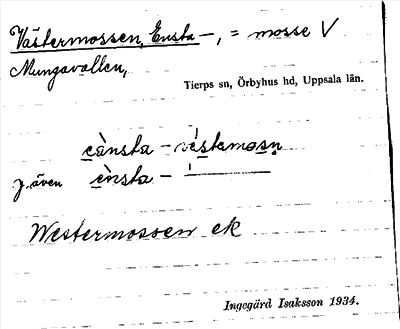 Västermossen, Ensta –, = mosse V
Mungavallen,
Tierps sn, Örbyhus hd, Uppsala län.
cànsta – véstamosn
även còsta –
Westermossen ek
Ingegärd Isaksson 1934.